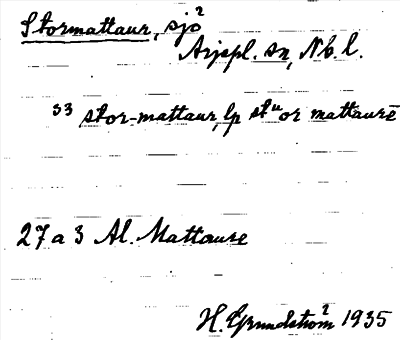 Stormattaur, sjö
Arjepl. sn, Nb. l.
33 stor-mattaur, lp stuor mattaurē
27 a 3 Al. Mattaure
H. Grundström 1935